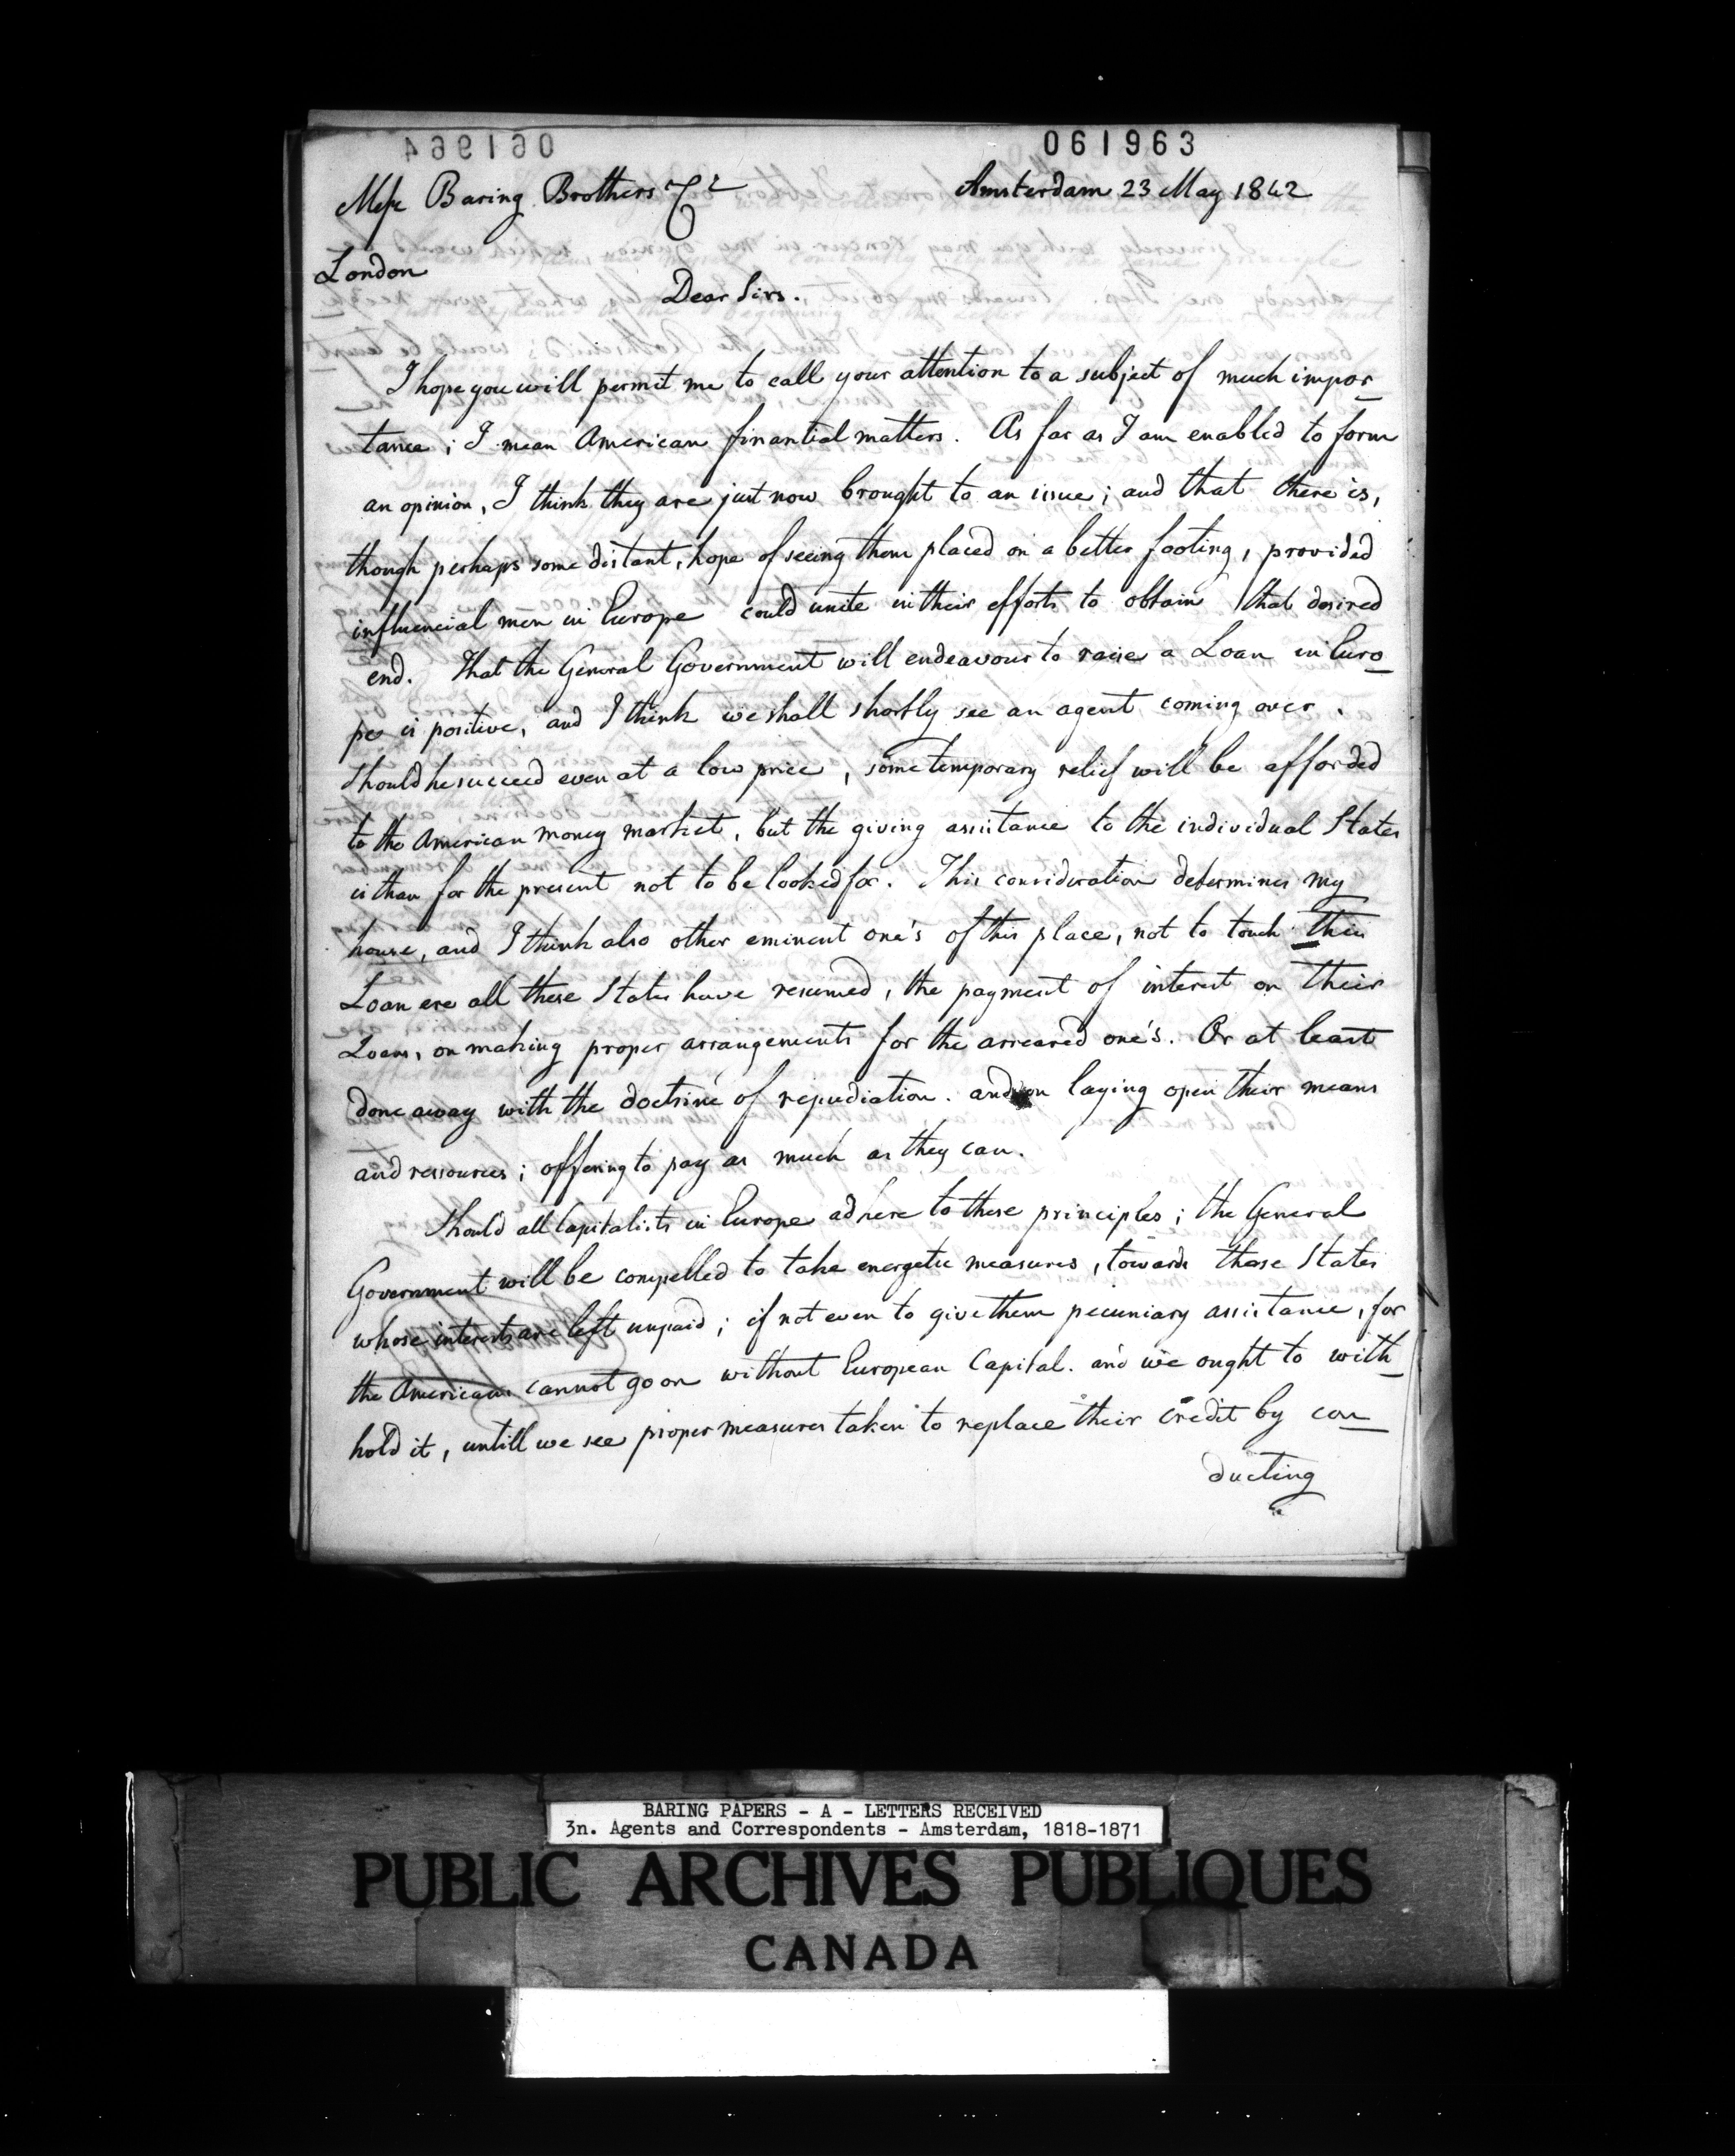 061964
061963
Mess Baring Brothers & Cº
Amsterdam 23 May 1842
London
Dear Sirs.
I hope you will permit me to call your attention to a subject of much impor
tance; I mean American finantial matters. As far as I am enabled to form
an opinion, I think they are just now brought to an issue; and that there is,
though perhaps some distant, hope of seeing them placed on a better footing, provided
influencial men in Europe could unite in their efforts to obtain that desired
end. That the General Government will endeavour to raise a Loan in Euro
pe is positive, and I think we shall shortly see an agent coming over.
Should he succeed even at a low price, some temporary relief will be afforded
to the American money market, but the giving assistance to the individual States
is than for the present not to be looked for. This consideration determines my
house, and I think also other eminent one's of this place, not to touch this
Loan ere all these States have resumed, the payment of interest on their
Loans, on making proper arrangements for the arreared one's. Or at least
done away with the doctrine of repudiation. and on laying open their means
and ressources; offering to pay as much as they can.
Should all Capitalists in Europe adhere to these principles; the General
Government will be compelled to take energetic measures, towards those States
whose interests are left unpaid; if not even to give them pecuniary assistance, for
the Americans cannot go on without European Capital. and we ought to with
hold it, untill we see proper measures taken to replace their credit by con
ducting
BARING PAPERS - A - LETTERS RECEIVED
3n. Agents and Correspondents - Amsterdam, 1818-1871
PUBLIC ARCHIVES PUBLIQUES
CANADA